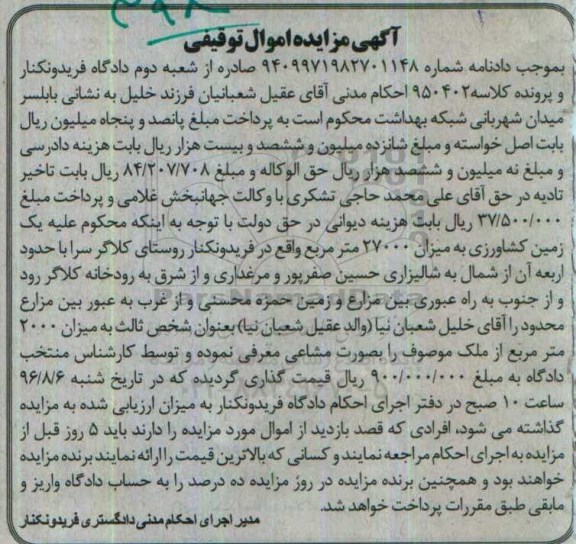 آگهی مزایده اموال توقیفی
بموجب دادنامه شماره ۹۴۰۹۹۷۱۹۸۲۷۰۱۱۴۸ صادره از شعبه دوم دادگاه فریدونکنار
و پرونده کلاسه۹۵۰۴۰۲ احکام مدنی آقای عقیل شعبانیان فرزند خلیل به نشانی بابلسر
میدان شهربانی شبکه بهداشت محکوم است به پرداخت مبلغ پانصد و پنجاه میلیون ریال
بابت اصل خواسته و مبلغ شانزده میلیون و ششصد و بیست هزار ریال بابت هزینه دادرسی
و مبلغ نه میلیون و ششصد هزار ریال حق الوکاله و مبلغ ۸۴/۲۰۷/۷۰۸ ریال بابت تاخیر
تادیه در حق آقای علی محمد حاجی تشکری با وکالت جهانبخش غلامی و پرداخت مبلغ
۳۷/۵۰۰/۰۰۰ ریال بابت هزینه دیوانی در حق دولت با توجه به اینکه محکوم علیه یک
زمین کشاورزی به میزان ۲۷۰۰۰ متر مربع واقع در فریدونکنار روستای کلاگر سرا با حدود
اربعه آن از شمال به شالیزاری حسین صفرپور و مرغداری و از شرق به رودخانه کلاگر رود
و از جنوب به راه عبوری بین مزارع و زمین حمزه محسنی و از غرب به عبور بین مزارع
محدود را آقای خلیل شعبان نیا (والد عقیل شعبان نیا) بعنوان شخص ثالث به میزان ۲۰۰۰
متر مربع از ملک موصوف را بصورت مشاعی معرفی نموده و توسط کارشناس منتخب
دادگاه به مبلغ ۹۰۰/۰۰۰/۰۰۰ ریال قیمت گذاری گردیده که در تاریخ شنبه ۹۶/۸/۶
ساعت ۱۰ صبح در دفتر اجرای احکام دادگاه فریدونکنار به میزان ارزیابی شده به مزایده
گذاشته می شود، افرادی که قصد بازدید از اموال مورد مزایده را دارند باید ۵ روز قبل از
مزایده به اجرای احکام مراجعه نمایند و کسانی که بالاترین قیمت را ارائه نمایند برنده مزایده
خواهند بود و همچنین برنده مزایده در روز مزایده ده درصد را به حساب دادگاه واریز و
مابقی طبق مقررات پرداخت خواهد شد.
مدیر اجرای احکام مدنی دادگستری فریدونکنار